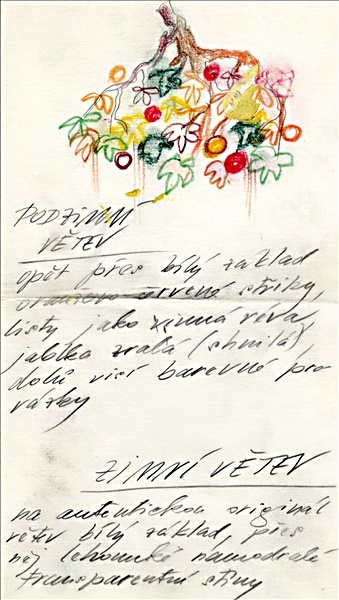 PODZIMNÍ
VĚTEV
opět přes bílý základ
oranžovo červené střiky,
listy jako zimná réva,
jablka zralá (shnilá),
dolů visí barevné pro
vázky
ZIMNÍ VĚTEV
na autentickou originál
větev bílý základ, přes
něj lehounké namodralé
transparentní stíny